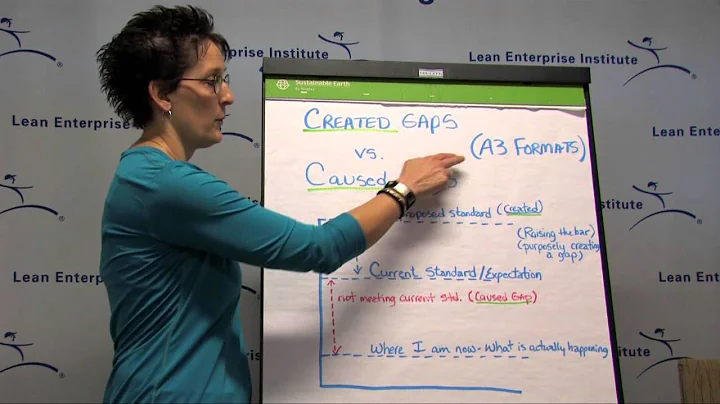 Lean Enterprise Institute
Lean Enterprise Institute
Lean Enterprise Institute
Sustainable Earth
CREATED GAPS
vs.
(A3 FORMATS)
CAUSED
standard (Created)
(Raising the bar)
(purposely creating
a gap)
Current Standard/Expectation
not meeting current std. (CAUSED GAP)
Where I am now - What is actually happening
Lean Enterprise
Lean Enterprise
Lean Enterprise Institute
Institute
Institute